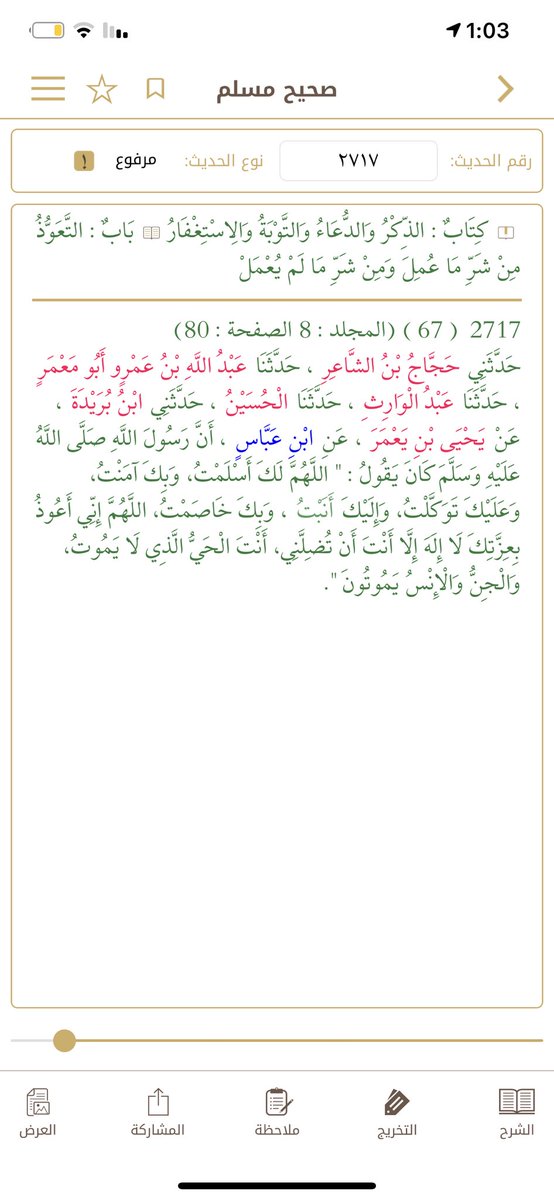 1:03
صحيح مسلم
رقم الحديث: ٢٧١٧ نوع الحديث: مرفوع
كِتَابٌ : الذِّكْرُ وَالدُّعَاءُ وَالتَّوْبَةُ وَالِاسْتِغْفَارُ بَابٌ : التَّعَوُّذُ
مِنْ شَرِّ مَا عُمِلَ وَمِنْ شَرِّ مَا لَمْ يُعْمَلْ
2717 ( 67 ) (المجلد : 8 الصفحة : 80)
حَدَّثَنِي حَجَّاجُ بْنُ الشَّاعِرِ ، حَدَّثَنَا عَبْدُ اللَّهِ بْنُ عَمْرٍو أَبُو مَعْمَرٍ
، حَدَّثَنَا عَبْدُ الْوَارِثِ ، حَدَّثَنَا الْحُسَيْنُ ، حَدَّثَنِي ابْنُ بُرَيْدَةَ ،
عَنْ يَحْيَى بْنِ يَعْمَرَ ، عَنِ ابْنِ عَبَّاسٍ ، أَنَّ رَسُولَ اللَّهِ صَلَّى اللَّهُ
عَلَيْهِ وَسَلَّمَ كَانَ يَقُولُ : " اللَّهُمَّ لَكَ أَسْلَمْتُ، وَبِكَ آمَنْتُ،
وَعَلَيْكَ تَوَكَّلْتُ، وَإِلَيْكَ أَنَبْتُ ، وَبِكَ خَاصَمْتُ، اللَّهُمَّ إِنِّي أَعُوذُ
بِعِزَّتِكَ لَا إِلَهَ إِلَّا أَنْتَ أَنْ تُضِلَّنِي، أَنْتَ الْحَيُّ الَّذِي لَا يَمُوتُ،
وَالْجِنُّ وَالْإِنْسُ يَمُوتُونَ ".
الشرح التخريج ملاحظة المشاركة العرض